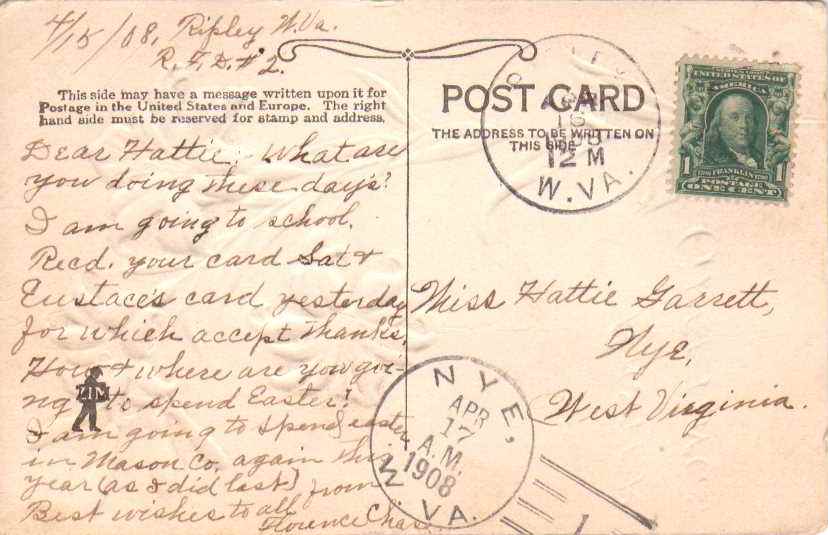 4/15/08, Ripley W.Va.
R.F.D.# 2.
This side may have a message written upon it for
Postage in the United States and Europe. The right
hand side must be reserved for stamp and address.
Dear Hattie:- What are
you doing these days?
I am going to school.
Recd. your card Sat &
Eustace's card yesterday
for which accept thanks.
How & where are you goi-
ng to spend Easter?
I am going to spend easter
in Mason Co. again this
year (as I did last) from
Best wishes to all
Florence Chas
ZIM
POST CARD
THE ADDRESS TO BE WRITTEN ON
THIS SIDE
APR
16
1908
12 M
W.VA.
SERIES 1902
UNITED STATES OF
AMERICA
1706 FRANKLIN 1790
1 POSTAGE 1
ONE CENT
Miss Hattie Garrett,
Nye,
West Virginia.
NYE,
APR
17
A.M.
1908
W.VA.
1